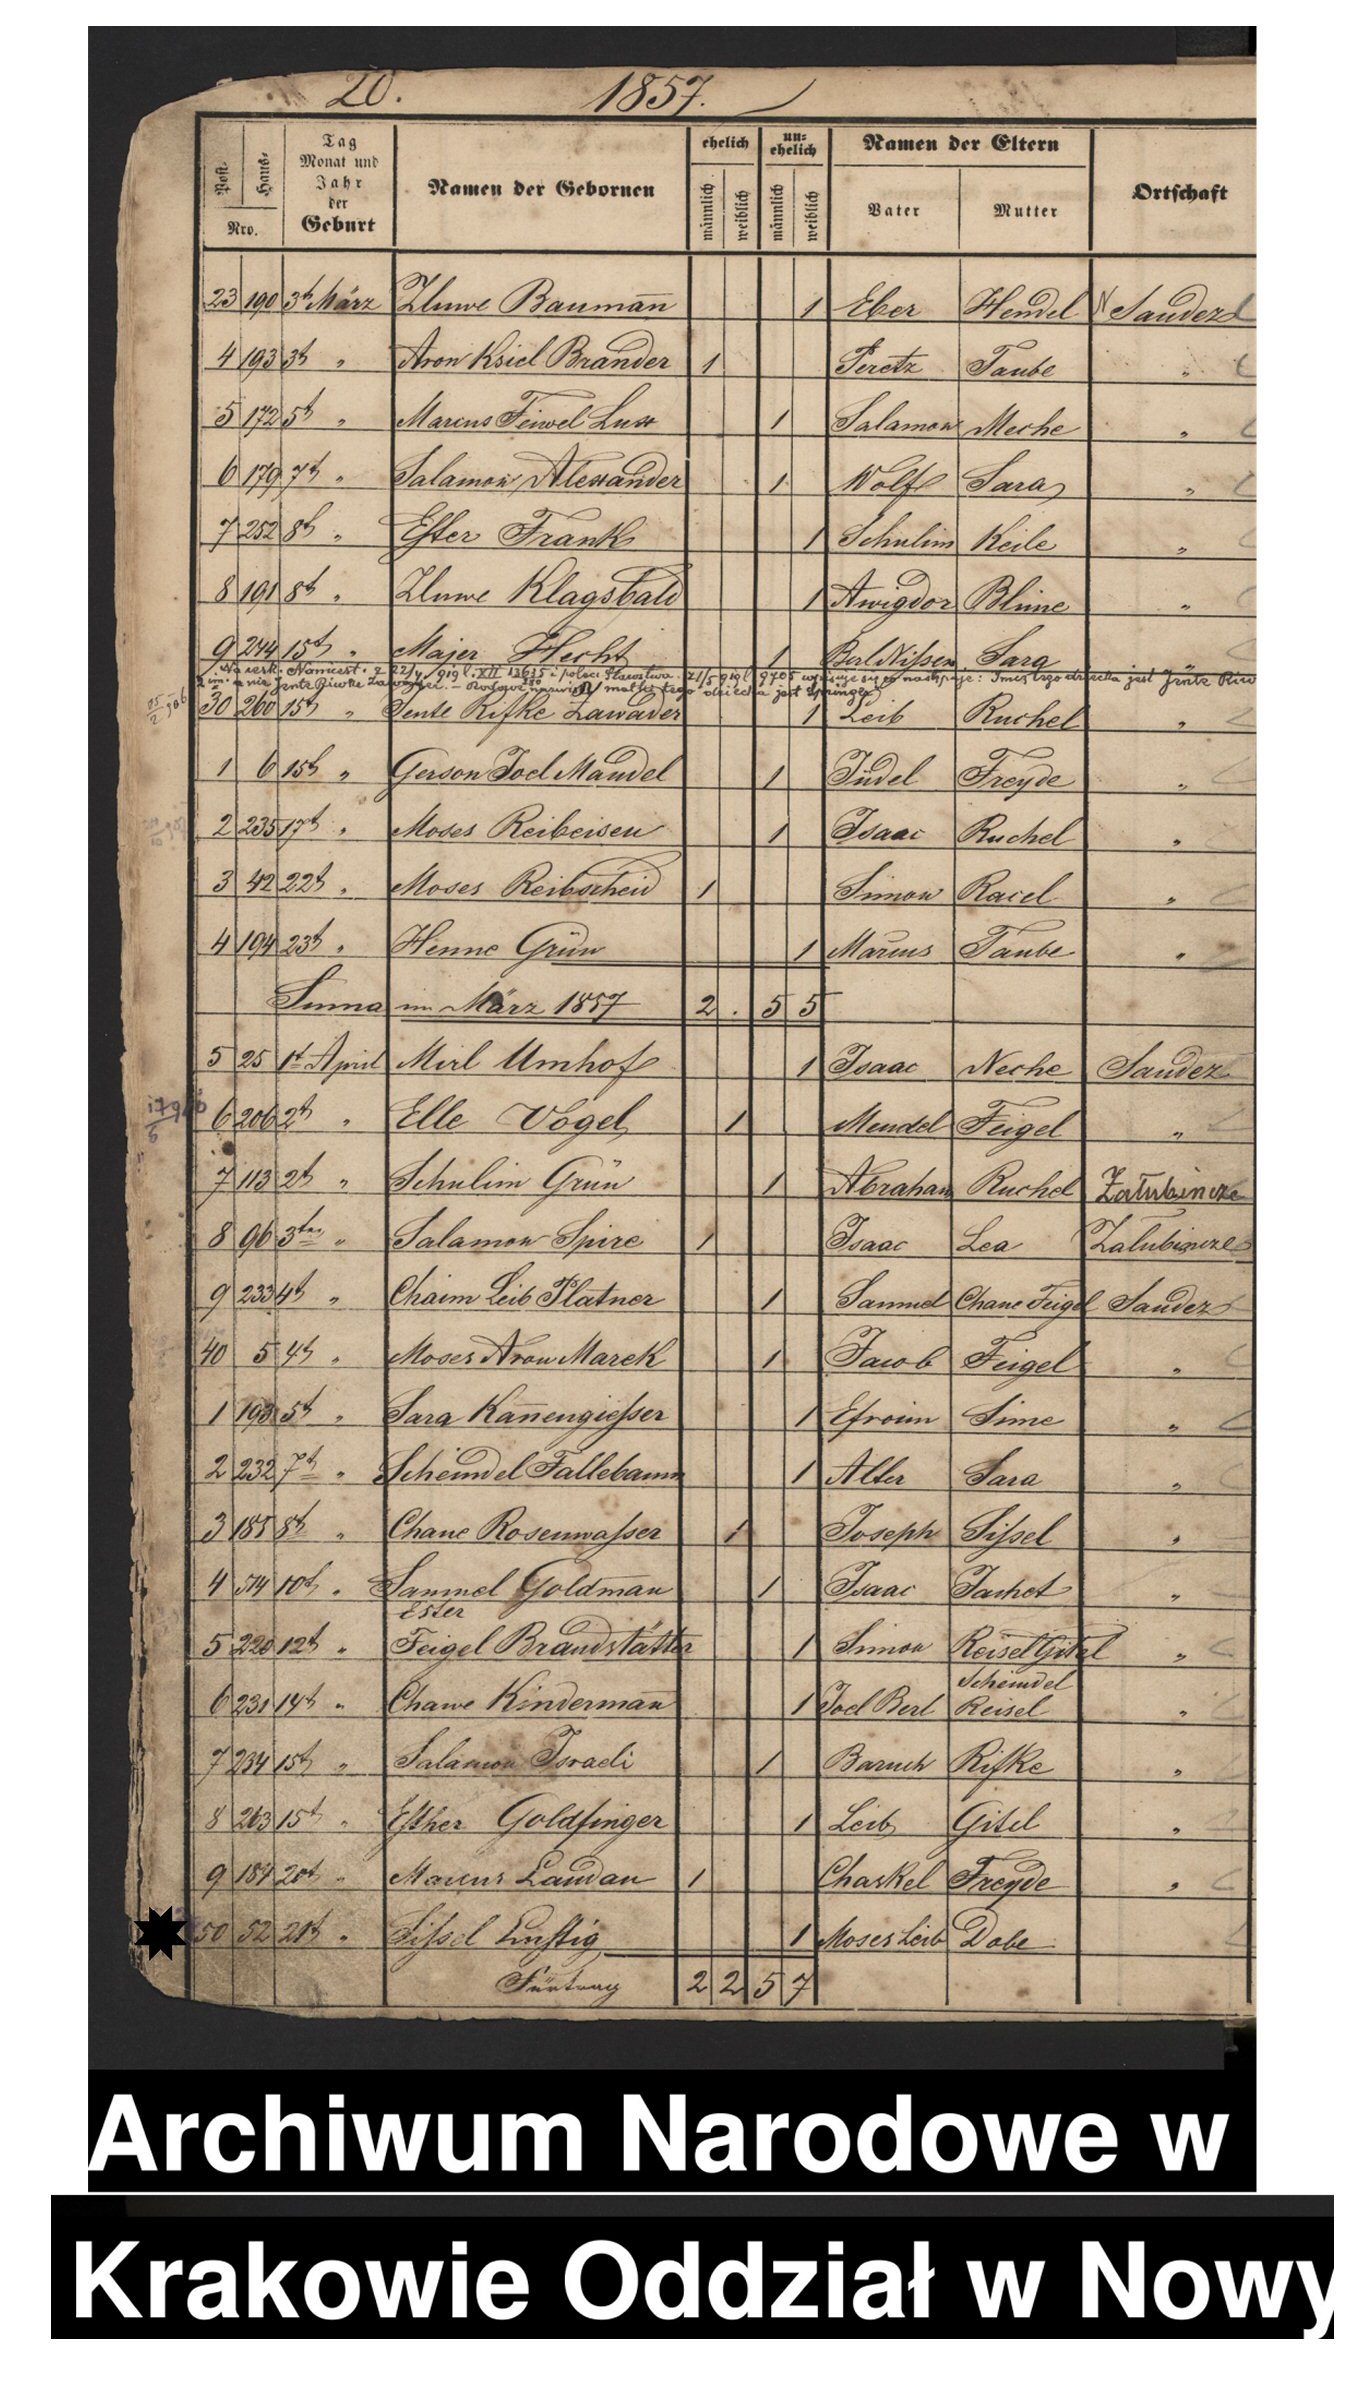 20. 1857.
Post- Haus- Nro. Tag Monat und Jahr der Geburt Namen der Gebornen ehelich männlich weiblich un-ehelich männlich weiblich Namen der Eltern Vater Mutter Ortschaft
23 190 3t März Zluwe Baumann 1 Eber Hendel N Sandez
4 193 3t " Aron Ksiel Brander 1 Peretz Taube "
5 172 5t " Marcus Feiwel Lust 1 Salamon Meche "
6 179 7t " Salamon Alexander 1 Wolf Sara "
7 252 8t " Ester Frank 1 Schulim Keile "
8 191 8t " Zluwe Klagsbald 1 Awigdor Blime "
9 244 15t " Majer Hecht 1 Berl Nissen Sara
30 260 15t " Jente Rifke Zawader 1 Leib Ruchel "
1 6 15t " Gerson Joel Mandel 1 Judel Freyde "
2 235 17t " Moses Reibeisen 1 Isaac Ruchel "
3 42 22t " Moses Reibscheid 1 Simon Racel "
4 194 23t " Henne Grün 1 Marcus Taube "
Suma im März 1857 2 . 5 5
5 25 1t April Mirl Umhof 1 Isaac Neche Sandez
6 206 2t " Elle Vogel 1 Mendel Feigel "
7 113 2t " Schulim Grün 1 Abraham Ruchel Załubincze
8 96 3ten " Salamon Spire 1 Isaac Lea Zalubincze
9 233 4t " Chaim Leib Platner 1 Samuel Chane Feigel Sandez
40 5 4t " Moses Aron Marek 1 Jacob Feigel "
1 193 5t " Sara Kanengiesser 1 Efroim Sime "
2 232 7t " Scheindel Fallebaum 1 Alter Sara "
3 188 8t " Chane Rosenwasser 1 Joseph Sissel "
4 514 10t " Samuel Goldman 1 Isaac Jachet "
Ester
5 220 12t " Feigel Brandstätter 1 Simon Reisel Gitel "
Scheindel
6 231 14t " Chawe Kindermann 1 Joel Berl Reisel "
7 234 15t " Salamon Israeli 1 Baruch Rifke "
8 263 15t " Esther Goldfinger 1 Leib Gitel "
9 184 20t " Marcus Landau 1 Chaskel Freyde "
50 52 21t " Sissel Lustig 1 Moses Leib Dobe
Fürtrag 2 2 5 7
Archiwum Narodowe w
Krakowie Oddział w Nowy